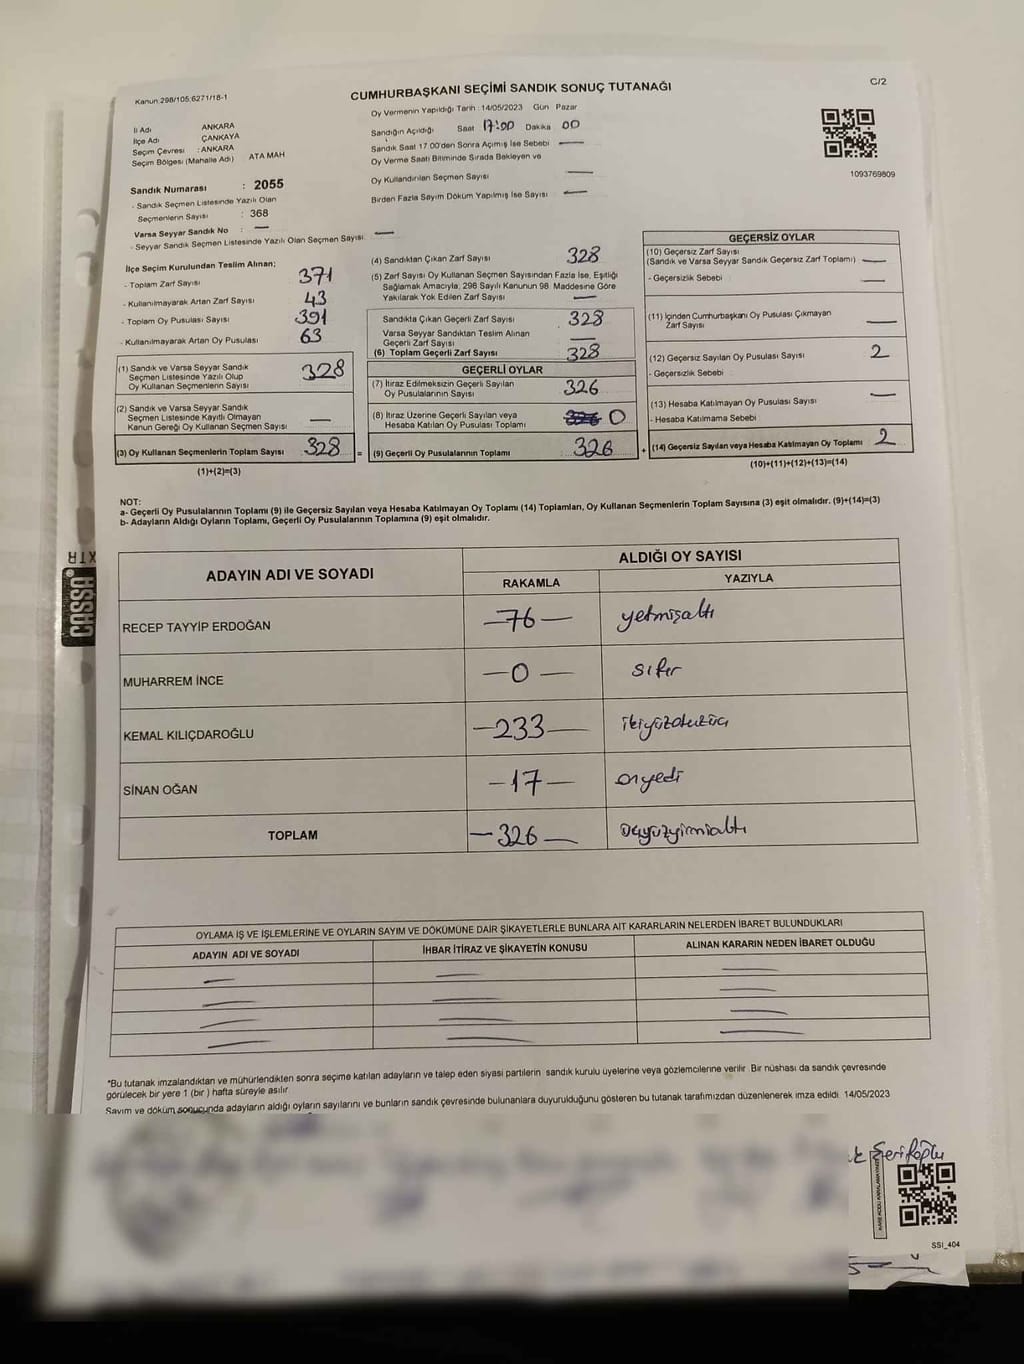 Kanun 298/105,6271/18-1
CUMHURBAŞKANI SEÇİMİ SANDIK SONUÇ TUTANAĞI
C/2
İl Adı ANKARA
İlçe Adı ÇANKAYA
Seçim Çevresi : ANKARA
Seçim Bölgesi (Mahalle Adı) ATA MAH
Sandık Numarası : 2055
- Sandık Seçmen Listesinde Yazılı Olan
Seçmenlerin Sayısı : 368
Varsa Seyyar Sandık No : —
- Seyyar Sandık Seçmen Listesinde Yazılı Olan Seçmen Sayısı: —
Oy Vermenin Yapıldığı Tarih : 14/05/2023 Gün Pazar
Sandığın Açıldığı Saat 17:00 Dakika 00
Sandık Saat 17 00'den Sonra Açımış İse Sebebi —
Oy Verme Saati Bitiminde Sırada Bekleyen ve
Oy Kullandırılan Seçmen Sayısı —
Birden Fazla Sayım Döküm Yapılmış İse Sayısı —
1093769809
İlçe Seçim Kurulundan Teslim Alınan;
- Toplam Zarf Sayısı 371
- Kullanılmayarak Artan Zarf Sayısı 43
- Toplam Oy Pusulası Sayısı 391
- Kullanılmayarak Artan Oy Pusulası 63
(1) Sandık ve Varsa Seyyar Sandık
Seçmen Listesinde Yazılı Olup
Oy Kullanan Seçmenlerin Sayısı 328
(2) Sandık ve Varsa Seyyar Sandık
Seçmen Listesinde Kayıtlı Olmayan
Kanun Gereği Oy Kullanan Seçmen Sayısı —
(3) Oy Kullanan Seçmenlerin Toplam Sayısı 328 =
(1)+(2)=(3)
(4) Sandıktan Çıkan Zarf Sayısı 328
(5) Zarf Sayısı Oy Kullanan Seçmen Sayısından Fazla İse, Eşitliği
Sağlamak Amacıyla, 298 Sayılı Kanunun 98. Maddesine Göre
Yakılarak Yok Edilen Zarf Sayısı —
Sandıkta Çıkan Geçerli Zarf Sayısı 328
Varsa Seyyar Sandıktan Teslim Alınan
Geçerli Zarf Sayısı —
(6) Toplam Geçerli Zarf Sayısı 328
GEÇERLİ OYLAR
(7) İtiraz Edilmeksizin Geçerli Sayılan
Oy Pusulalarının Sayısı 326
(8) İtiraz Üzerine Geçerli Sayılan veya
Hesaba Katılan Oy Pusulası Toplamı 0
(9) Geçerli Oy Pusulalarının Toplamı 326 +
GEÇERSİZ OYLAR
(10) Geçersiz Zarf Sayısı
(Sandık ve Varsa Seyyar Sandık Geçersiz Zarf Toplamı) —
- Geçersizlik Sebebi —
(11) İçinden Cumhurbaşkanı Oy Pusulası Çıkmayan
Zarf Sayısı —
(12) Geçersiz Sayılan Oy Pusulası Sayısı 2
- Geçersizlik Sebebi
(13) Hesaba Katılmayan Oy Pusulası Sayısı —
- Hesaba Katılmama Sebebi
(14) Geçersiz Sayılan veya Hesaba Katılmayan Oy Toplamı 2
(10)+(11)+(12)+(13)=(14)
NOT:
a- Geçerli Oy Pusulalarının Toplamı (9) ile Geçersiz Sayılan veya Hesaba Katılmayan Oy Toplamı (14) Toplamları, Oy Kullanan Seçmenlerin Toplam Sayısına (3) eşit olmalıdır. (9)+(14)=(3)
b- Adayların Aldığı Oyların Toplamı, Geçerli Oy Pusulalarının Toplamına (9) eşit olmalıdır.
ADAYIN ADI VE SOYADI
ALDIĞI OY SAYISI
RAKAMLA YAZIYLA
RECEP TAYYİP ERDOĞAN —76— yetmişaltı
MUHARREM İNCE —0— sıfır
KEMAL KILIÇDAROĞLU —233— ikiyüzotuzüç
SİNAN OĞAN —17— onyedi
TOPLAM —326— üçyüzyirmialtı
OYLAMA İŞ VE İŞLEMLERİNE VE OYLARIN SAYIM VE DÖKÜMÜNE DAİR ŞİKAYETLERLE BUNLARA AİT KARARLARIN NELERDEN İBARET BULUNDUKLARI
ADAYIN ADI VE SOYADI İHBAR İTİRAZ VE ŞİKAYETİN KONUSU ALINAN KARARIN NEDEN İBARET OLDUĞU
*Bu tutanak imzalandıktan ve mühürlendikten sonra seçime katılan adayların ve talep eden siyasi partilerin sandık kurulu üyelerine veya gözlemcilerine verilir. Bir nüshası da sandık çevresinde
görülecek bir yere 1 (bir) hafta süreyle asılır.
Sayım ve döküm sonucunda adayların aldığı oyların sayılarını ve bunların sandık çevresinde bulunanlara duyurulduğunu gösteren bu tutanak tarafımızdan düzenlenerek imza edildi. 14/05/2023
Şerifoğlu
SSI_404
CASSA